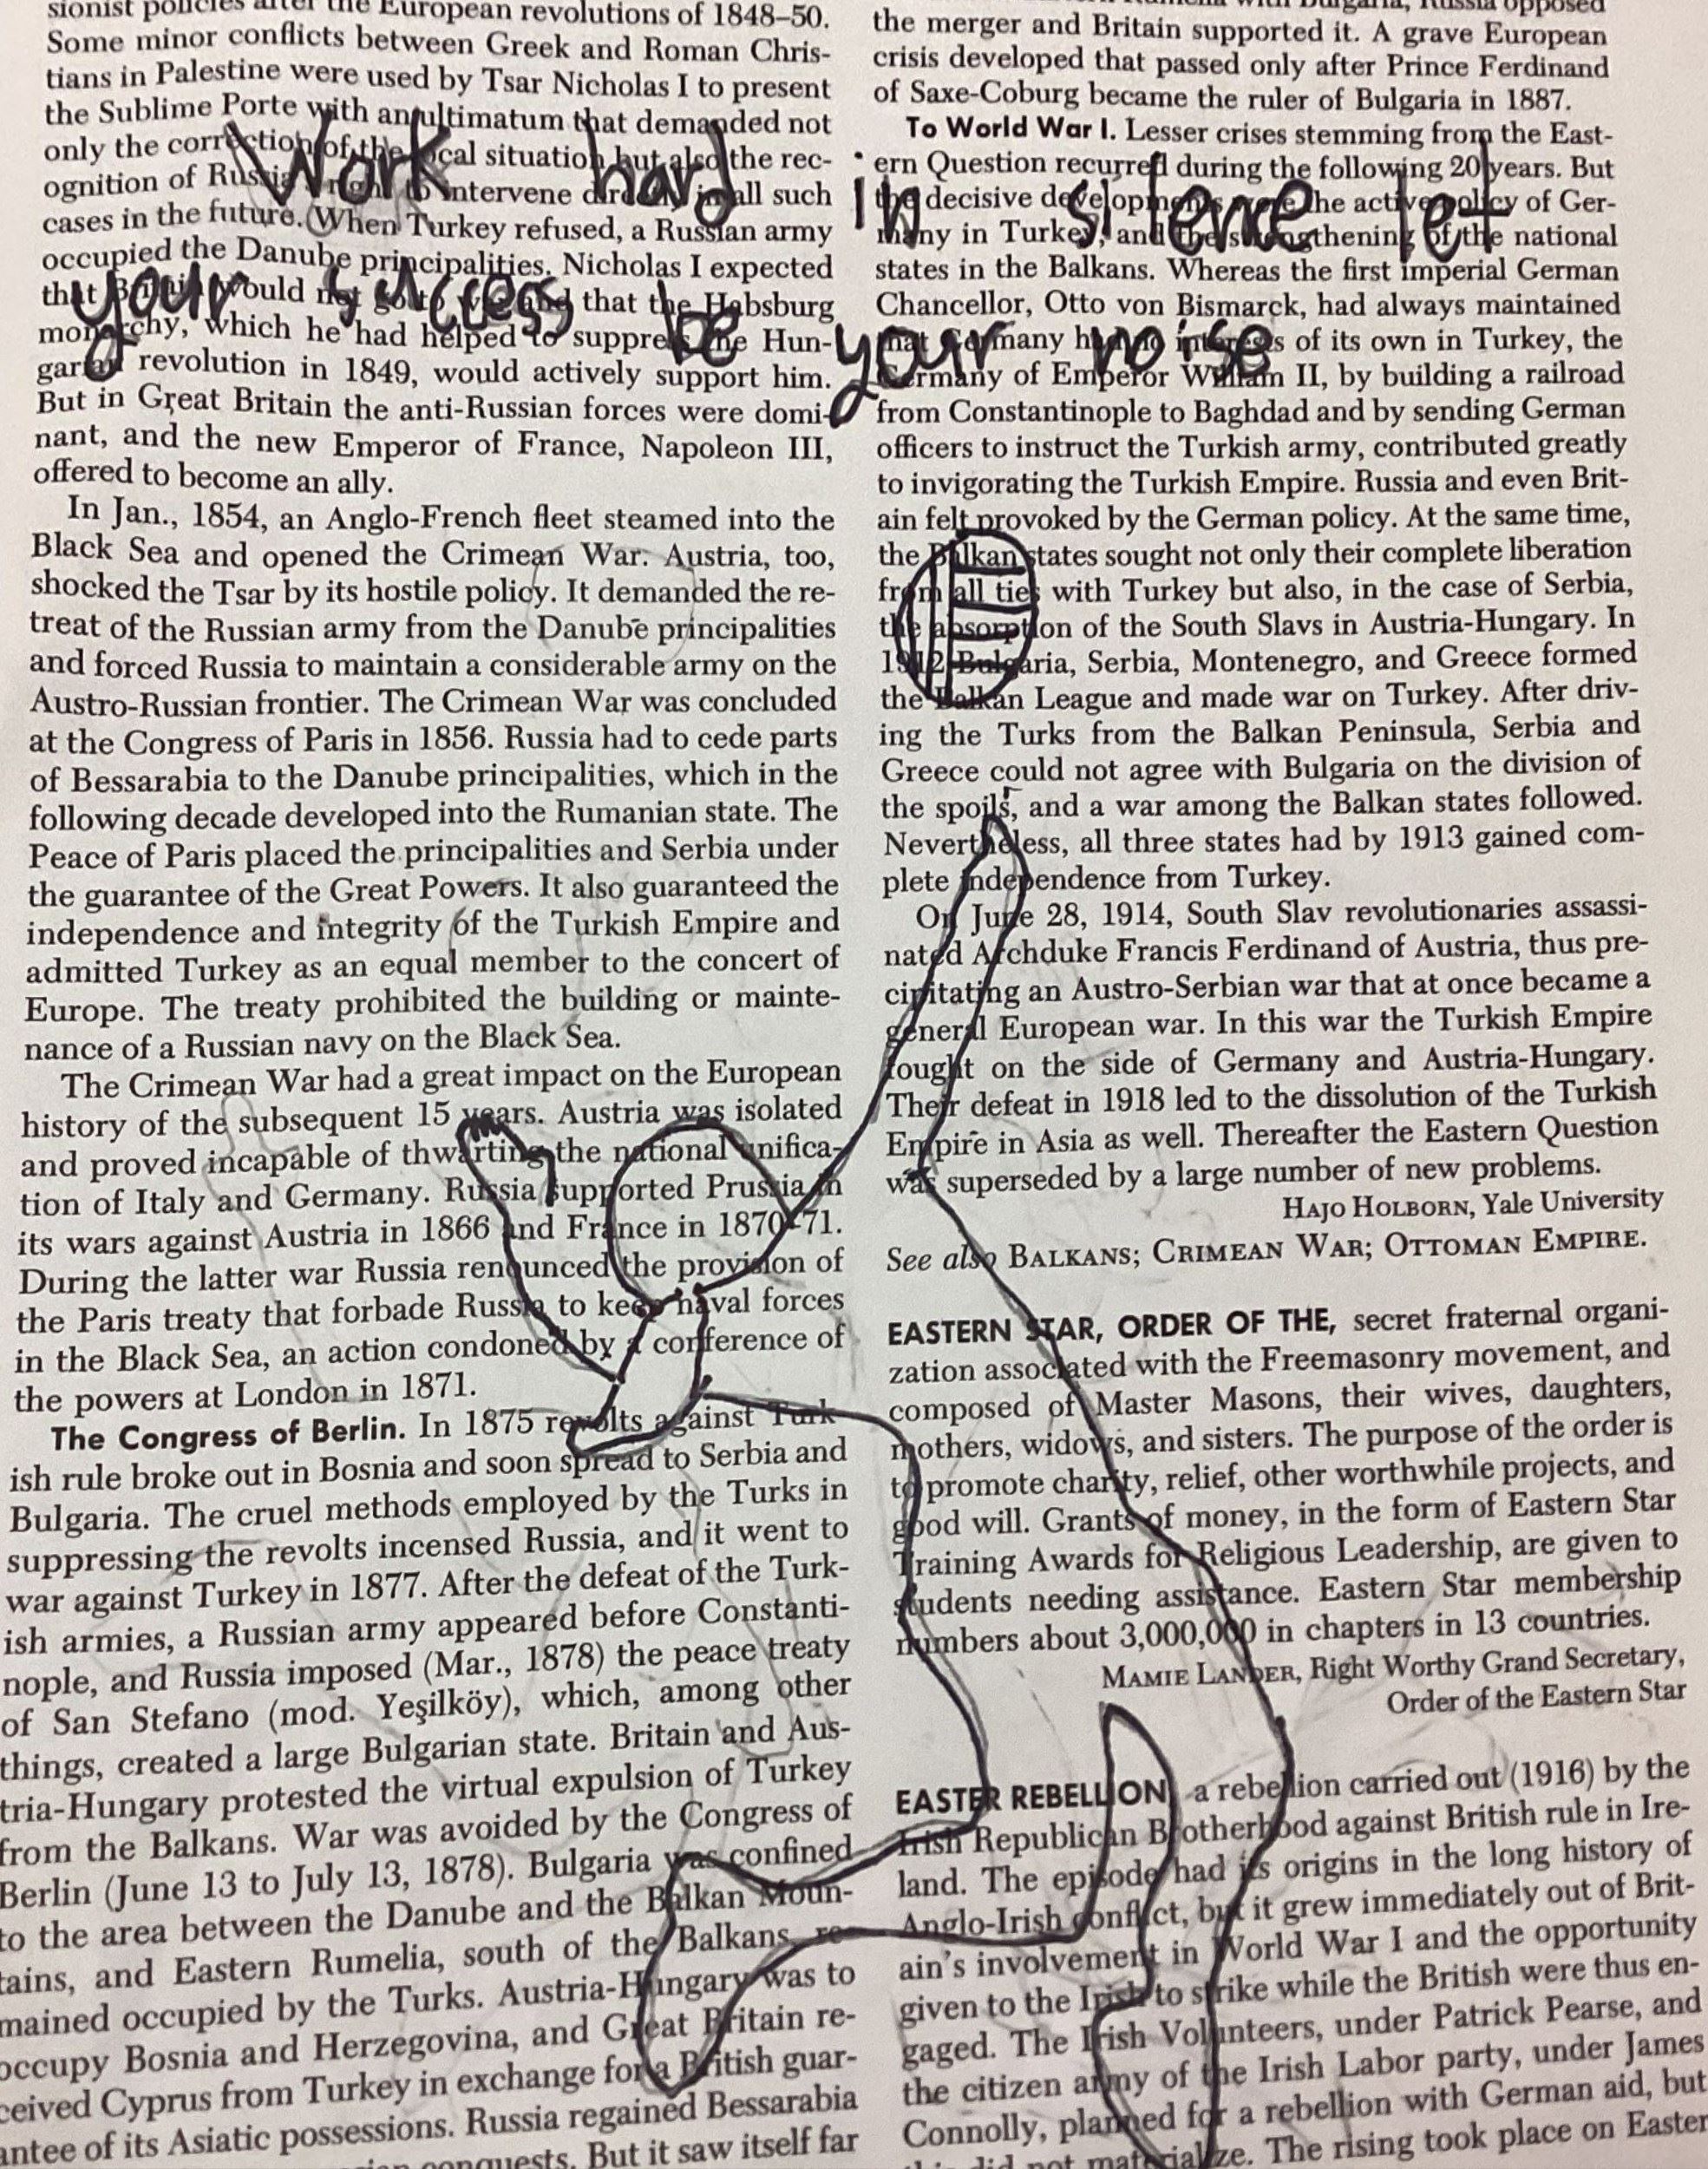 Work hard in slence let
your success be your noise
sionist policies after the European revolutions of 1848–50.
Some minor conflicts between Greek and Roman Chris-
tians in Palestine were used by Tsar Nicholas I to present
the Sublime Porte with an ultimatum that demanded not
only the correction of the local situation but also the rec-
ognition of Russia's right to intervene directly in all such
cases in the future. When Turkey refused, a Russian army
occupied the Danube principalities. Nicholas I expected
that Britain would not go to war and that the Habsburg
monarchy, which he had helped to suppress the Hun-
garian revolution in 1849, would actively support him.
But in Great Britain the anti-Russian forces were domi-
nant, and the new Emperor of France, Napoleon III,
offered to become an ally.
In Jan., 1854, an Anglo-French fleet steamed into the
Black Sea and opened the Crimean War. Austria, too,
shocked the Tsar by its hostile policy. It demanded the re-
treat of the Russian army from the Danube principalities
and forced Russia to maintain a considerable army on the
Austro-Russian frontier. The Crimean War was concluded
at the Congress of Paris in 1856. Russia had to cede parts
of Bessarabia to the Danube principalities, which in the
following decade developed into the Rumanian state. The
Peace of Paris placed the principalities and Serbia under
the guarantee of the Great Powers. It also guaranteed the
independence and integrity of the Turkish Empire and
admitted Turkey as an equal member to the concert of
Europe. The treaty prohibited the building or mainte-
nance of a Russian navy on the Black Sea.
The Crimean War had a great impact on the European
history of the subsequent 15 years. Austria was isolated
and proved incapable of thwarting the national unifica-
tion of Italy and Germany. Russia supported Prussia in
its wars against Austria in 1866 and France in 1870–71.
During the latter war Russia renounced the provision of
the Paris treaty that forbade Russia to keep naval forces
in the Black Sea, an action condoned by a conference of
the powers at London in 1871.
The Congress of Berlin. In 1875 revolts against Turk-
ish rule broke out in Bosnia and soon spread to Serbia and
Bulgaria. The cruel methods employed by the Turks in
suppressing the revolts incensed Russia, and it went to
war against Turkey in 1877. After the defeat of the Turk-
ish armies, a Russian army appeared before Constanti-
nople, and Russia imposed (Mar., 1878) the peace treaty
of San Stefano (mod. Yeşilköy), which, among other
things, created a large Bulgarian state. Britain and Aus-
tria-Hungary protested the virtual expulsion of Turkey
from the Balkans. War was avoided by the Congress of
Berlin (June 13 to July 13, 1878). Bulgaria was confined
to the area between the Danube and the Balkan Moun-
tains, and Eastern Rumelia, south of the Balkans, re-
mained occupied by the Turks. Austria-Hungary was to
occupy Bosnia and Herzegovina, and Great Britain re-
ceived Cyprus from Turkey in exchange for a British guar-
antee of its Asiatic possessions. Russia regained Bessarabia
conquests. But it saw itself far
with Bulgaria, Russia opposed
the merger and Britain supported it. A grave European
crisis developed that passed only after Prince Ferdinand
of Saxe-Coburg became the ruler of Bulgaria in 1887.
To World War I. Lesser crises stemming from the East-
ern Question recurred during the following 20 years. But
the decisive developments were the active policy of Ger-
many in Turkey, and the strengthening of the national
states in the Balkans. Whereas the first imperial German
Chancellor, Otto von Bismarck, had always maintained
that Germany had no interests of its own in Turkey, the
Germany of Emperor William II, by building a railroad
from Constantinople to Baghdad and by sending German
officers to instruct the Turkish army, contributed greatly
to invigorating the Turkish Empire. Russia and even Brit-
ain felt provoked by the German policy. At the same time,
the Balkan states sought not only their complete liberation
from all ties with Turkey but also, in the case of Serbia,
the absorption of the South Slavs in Austria-Hungary. In
1912 Bulgaria, Serbia, Montenegro, and Greece formed
the Balkan League and made war on Turkey. After driv-
ing the Turks from the Balkan Peninsula, Serbia and
Greece could not agree with Bulgaria on the division of
the spoils, and a war among the Balkan states followed.
Nevertheless, all three states had by 1913 gained com-
plete independence from Turkey.
On June 28, 1914, South Slav revolutionaries assassi-
nated Archduke Francis Ferdinand of Austria, thus pre-
cipitating an Austro-Serbian war that at once became a
general European war. In this war the Turkish Empire
fought on the side of Germany and Austria-Hungary.
Their defeat in 1918 led to the dissolution of the Turkish
Empire in Asia as well. Thereafter the Eastern Question
was superseded by a large number of new problems.
HAJO HOLBORN, Yale University
See also BALKANS; CRIMEAN WAR; OTTOMAN EMPIRE.
EASTERN STAR, ORDER OF THE, secret fraternal organi-
zation associated with the Freemasonry movement, and
composed of Master Masons, their wives, daughters,
mothers, widows, and sisters. The purpose of the order is
to promote charity, relief, other worthwhile projects, and
good will. Grants of money, in the form of Eastern Star
Training Awards for Religious Leadership, are given to
students needing assistance. Eastern Star membership
numbers about 3,000,000 in chapters in 13 countries.
MAMIE LANDER, Right Worthy Grand Secretary,
Order of the Eastern Star
EASTER REBELLION, a rebellion carried out (1916) by the
Irish Republican Brotherhood against British rule in Ire-
land. The episode had its origins in the long history of
Anglo-Irish conflict, but it grew immediately out of Brit-
ain's involvement in World War I and the opportunity
given to the Irish to strike while the British were thus en-
gaged. The Irish Volunteers, under Patrick Pearse, and
the citizen army of the Irish Labor party, under James
Connolly, planned for a rebellion with German aid, but
did not materialize. The rising took place on Easter